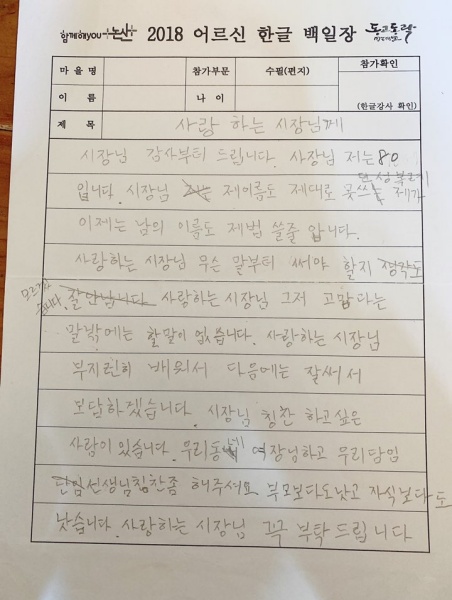 함께해you 논산 2018 어르신 한글 백일장 동고동락
마을명 참가부문 수필(편지) 참가확인
이름 나이 (한글강사 확인)
제목 사랑 하는 시장님께
시장님 감사부터 드립니다. 사장님 저는 80
입니다. 시장님 제이름도 제대로 못쓰는 제가
이제는 남의 이름도 제법 쓸줄 압니다.
사랑하는 시장님 무슨 말부터 써야 할지
모르겠
습니다. 잘 안납니다 사랑하는 시장님 그저 고맙다는
말밖에는 할말이 없습니다. 사랑하는 시장님
부지런히 배워서 다음에는 잘써서
보답하겠습니다. 시장님 칭찬 하고싶은
사람이 있습니다. 우리동네 여장님하고 우리담임
단임선생님칭찬좀 해주셔요 부모보다도낫고 자식보다도
낫습니다. 사랑하는 시장님 꼭꼭 부탁 드립니다